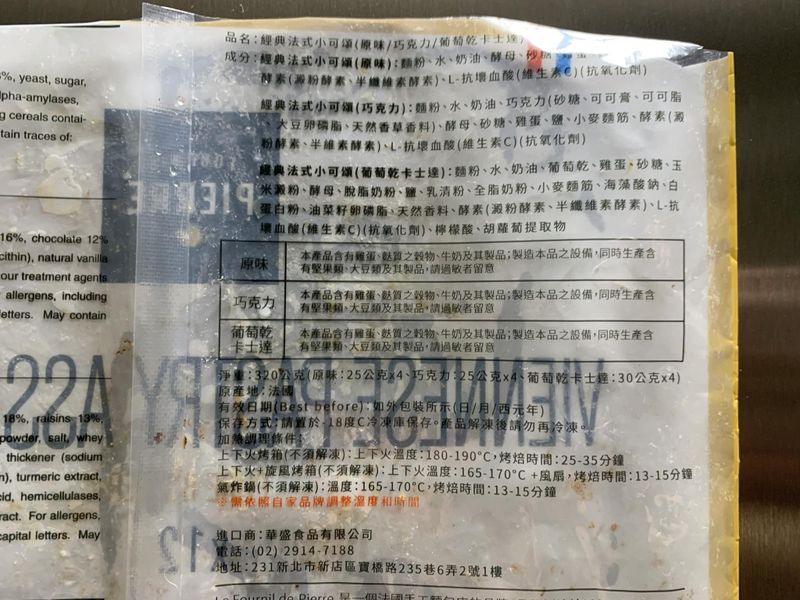 品名:經典法式小可頌(原味/巧克力/葡萄乾卡士達)
成分:經典法式小可頌(原味):麵粉、水、奶油、酵母、砂糖、雞蛋
酵素(澱粉酵素、半纖維素酵素)、L-抗壞血酸(維生素C)(抗氧化劑)
經典法式小可頌(巧克力):麵粉、水、奶油、巧克力(砂糖、可可膏、可可脂
、大豆卵磷脂、天然香草香料)、酵母、砂糖、雞蛋、鹽、小麥麵筋、酵素(澱
粉酵素、半維素酵素)、L-抗壞血酸(維生素C)(抗氧化劑)
經典法式小可頌(葡萄乾卡士達):麵粉、水、奶油、葡萄乾、雞蛋、砂糖、玉
米澱粉、酵母、脫脂奶粉、鹽、乳清粉、全脂奶粉、小麥麵筋、海藻酸鈉、白
蛋白粉、油菜籽卵磷脂、天然香料、酵素(澱粉酵素、半纖維素酵素)、L-抗
壞血酸(維生素C)(抗氧化劑)、檸檬酸、胡蘿蔔提取物
原味 本產品含有雞蛋、麩質之穀物、牛奶及其製品;製造本品之設備,同時生產含
有堅果類、大豆類及其製品,請過敏者留意
巧克力 本產品含有雞蛋、麩質之穀物、牛奶及其製品;製造本品之設備,同時生產含
有堅果類、大豆類及其製品,請過敏者留意
葡萄乾
卡士達 本產品含有雞蛋、麩質之穀物、牛奶及其製品;製造本品之設備,同時生產含
有堅果類、大豆類及其製品,請過敏者留意
淨重:320公克(原味:25公克x4、巧克力:25公克x4、葡萄乾卡士達:30公克x4)
原產地:法國
有效日期(Best before):如外包裝所示(日/月/西元年)
保存方式:請置於-18度C冷凍庫保存。產品解凍後請勿再冷凍。
加熱調理條件:
上下火烤箱(不須解凍):上下火溫度:180-190°C,烤焙時間:25-35分鐘
上下火+旋風烤箱(不須解凍):上下火溫度:165-170°C +風扇,烤焙時間:13-15分鐘
氣炸鍋(不須解凍):溫度:165-170°C,烤焙時間:13-15分鐘
※需依照自家品牌調整溫度和時間
進口商:華盛食品有限公司
電話:(02) 2914-7188
地址:231新北市新店區寶橋路235巷6弄2號1樓
Le Fournil de Pierre 是一個法國手工麵包店的品牌
%, yeast, sugar,
lpha-amylases,
g cereals contai-
tain traces of:
16%, chocolate 12%
cithin), natural vanilla
our treatment agents
allergens, including
letters. May contain
18%, raisins 13%,
powder, salt, whey
thickener (sodium
n), turmeric extract,
cid, hemicellulases,
ract. For allergens,
capital letters. May
PIERRE
VIENNESE PASTRY ASS